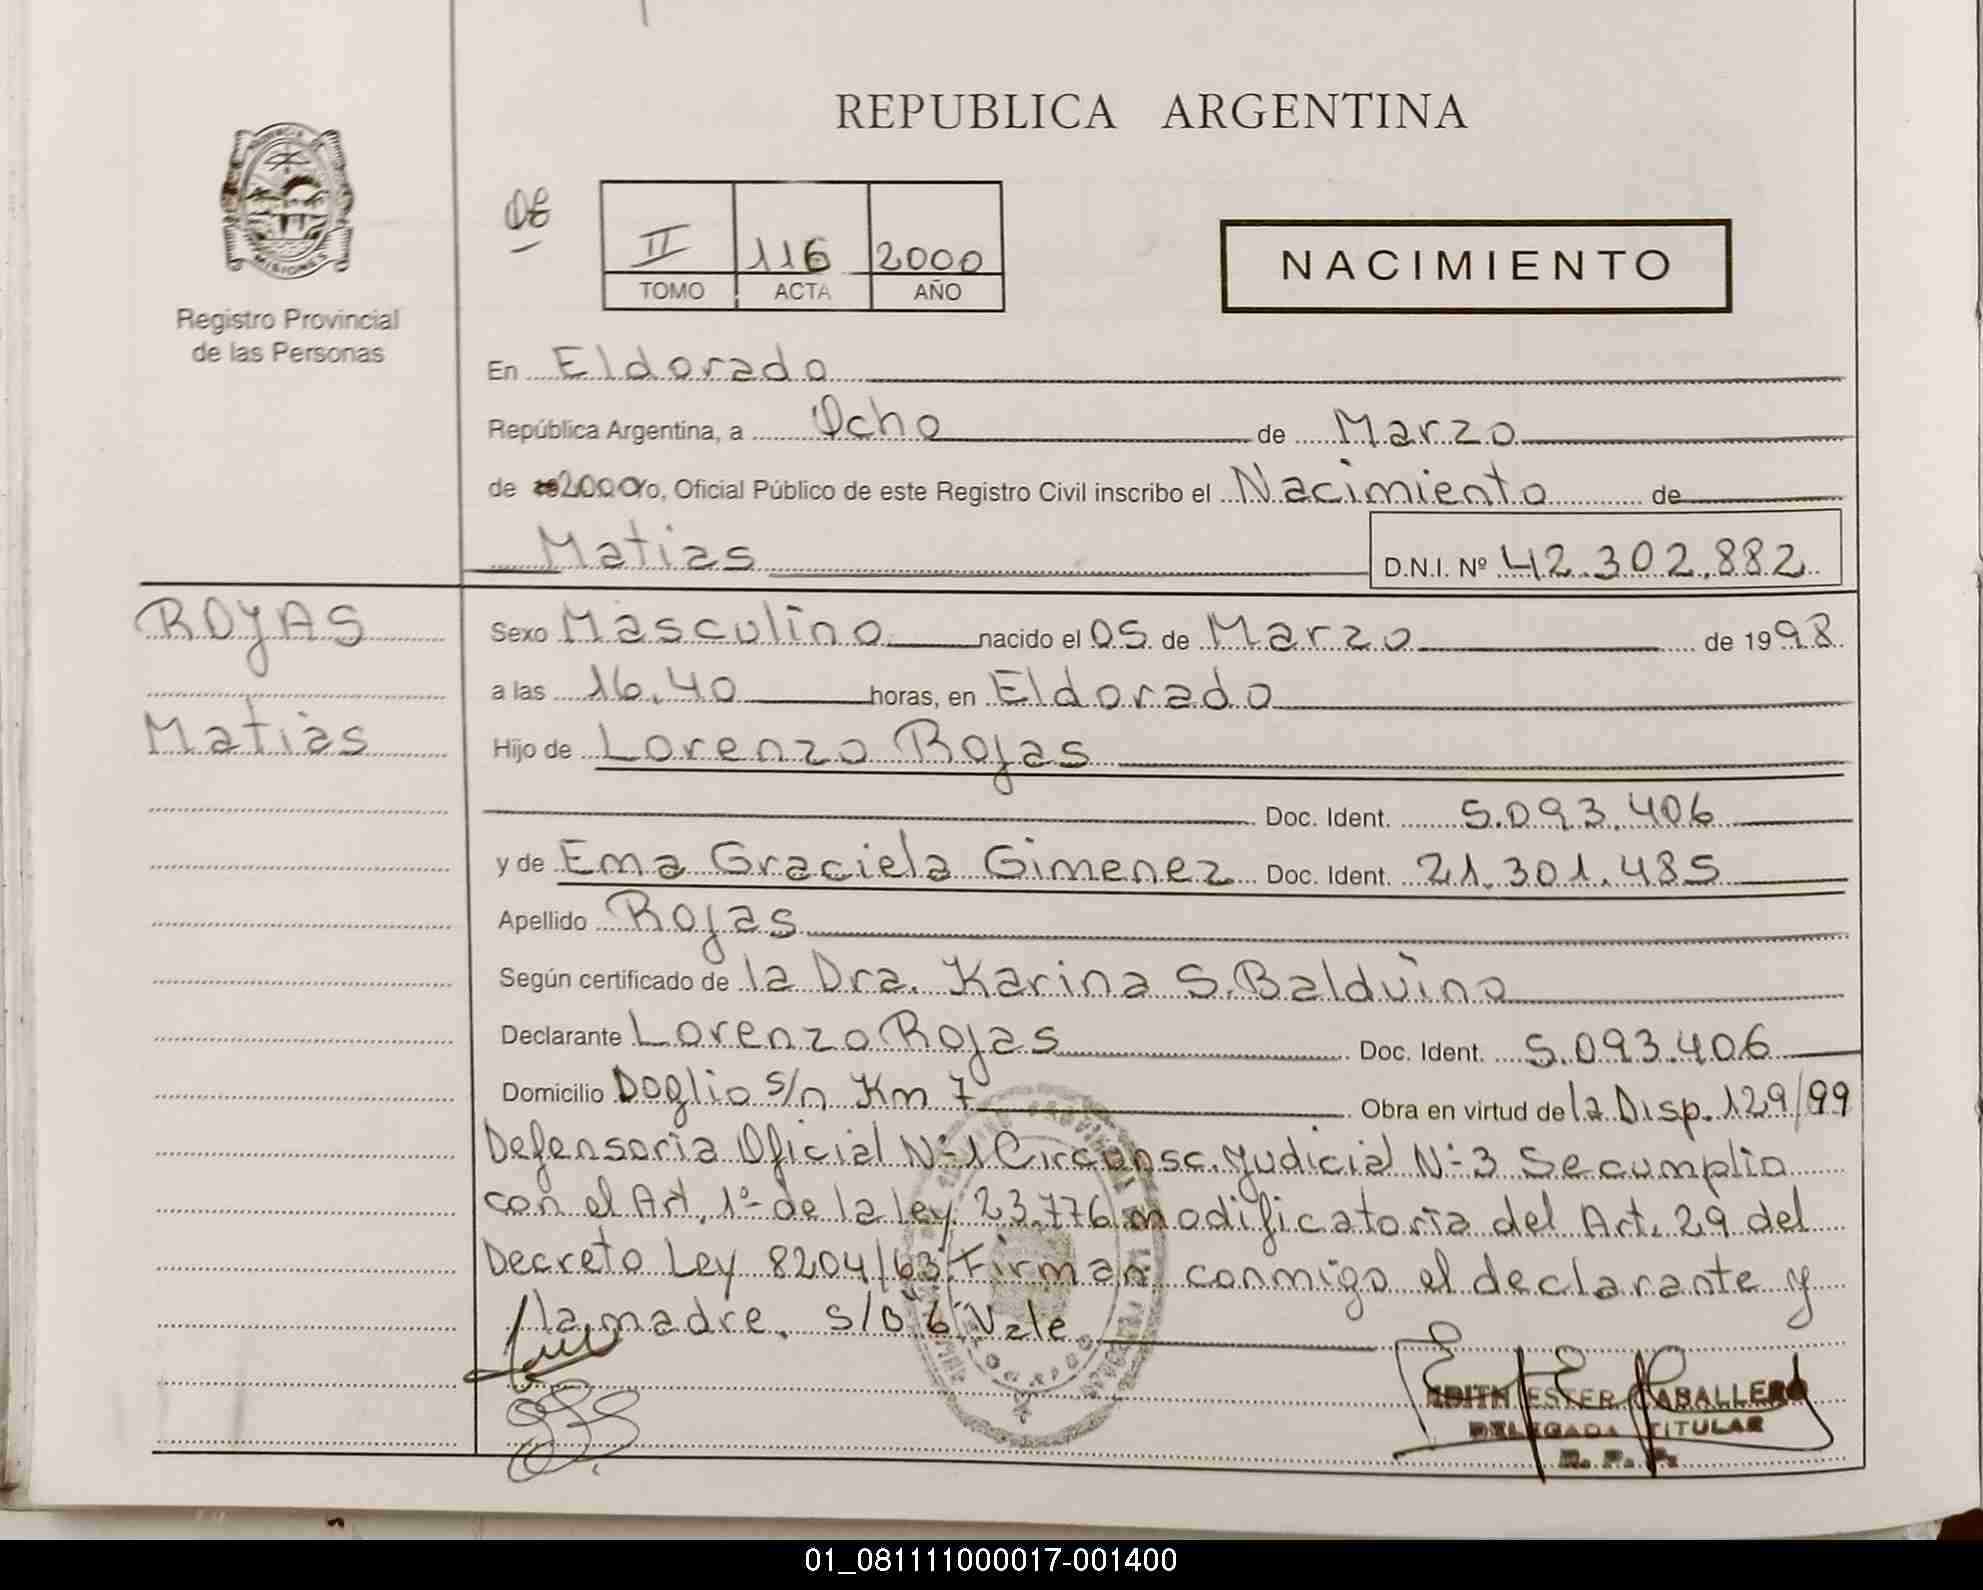 REPUBLICA ARGENTINA
PROVINCIA DE
MISIONES
Registro Provincial
de las Personas
II 116 2000
TOMO ACTA AÑO
NACIMIENTO
En Eldorado
República Argentina, a Ocho de Marzo
de 2000 yo, Oficial Público de este Registro Civil inscribo el Nacimiento de
Matias D.N.I. Nº 42.302.882
ROJAS
Matias
Sexo Masculino nacido el 05 de Marzo de 1998
a las 16,40 horas, en Eldorado
Hijo de Lorenzo Rojas
Doc. Ident. 5.093.406
y de Ema Graciela Gimenez Doc. Ident. 21.301.485
Apellido Rojas
Según certificado de la Dra. Karina S. Balduino
Declarante Lorenzo Rojas Doc. Ident. 5.093.406
Domicilio Doglio s/n Km 7 Obra en virtud de la Disp. 129/99
Defensoria Oficial Nº 1 Circunsc. Judicial Nº 3 Se cumplio
con el Art. 1º de la ley 23.776 modificatoria del Art. 29 del
Decreto Ley 8204/63 Firman conmigo el declarante y
la madre. s/b 6 Vale
EDITH ESTER CABALLERO
DELEGADA TITULAR
R. P. P.
01_081111000017-001400